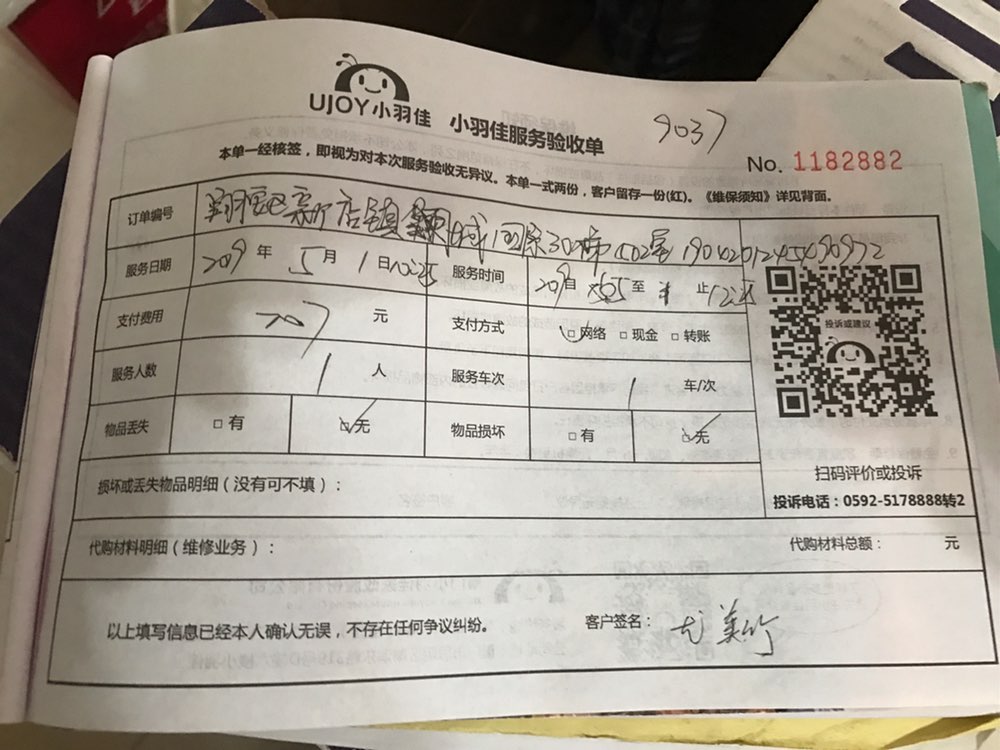 UJOY小羽佳 小羽佳服务验收单
9037
No. 1182882
本单一经核签，即视为对本次服务验收无异议。本单一式两份，客户留存一份(红)。《维保须知》详见背面。
订单编号 翔安区新店镇
服务日期 2019年5月1日 服务时间 自 至 止
支付费用 207元 支付方式 □网络 □现金 □转账
服务人数 1人 服务车次 1车/次
物品丢失 □有 ☑无 物品损坏 □有 ☑无
投诉或建议
扫码评价或投诉
投诉电话：0592-5178888转2
损坏或丢失物品明细（没有可不填）：
代购材料明细（维修业务）： 代购材料总额： 元
以上填写信息已经本人确认无误，不存在任何争议纠纷。 客户签名：